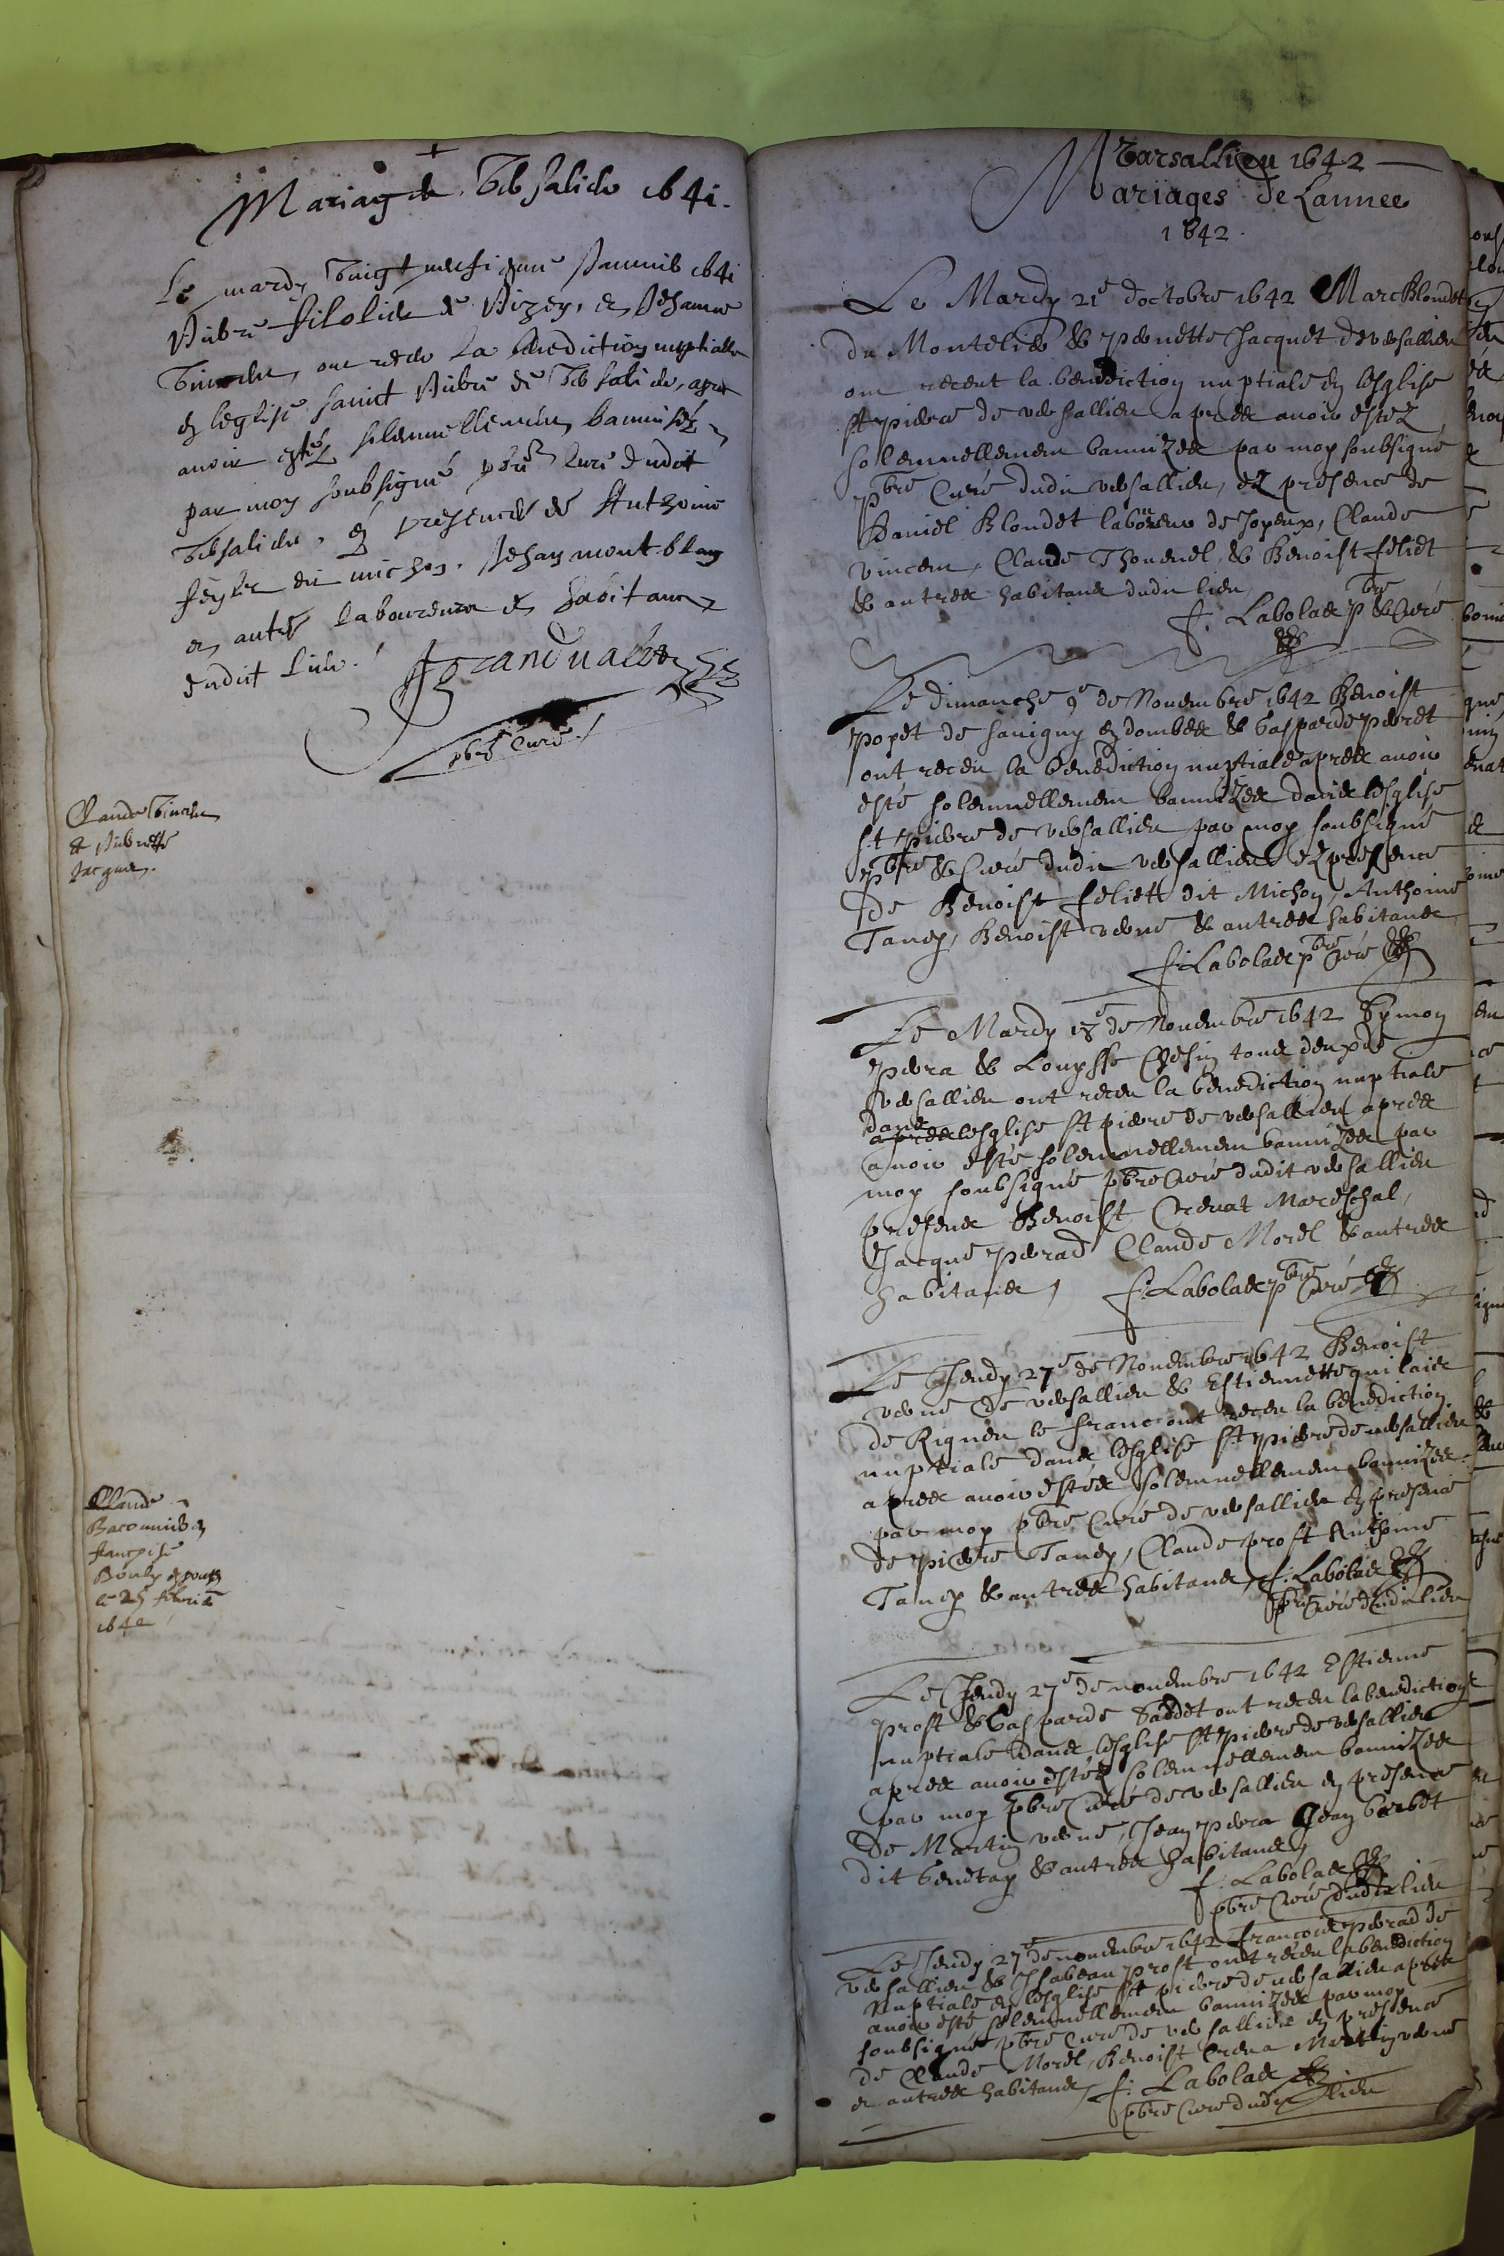 Mariag de Versalieu 1641.
Le mardy vingt neufiesme Janvie 1641
Pierre filolie de Vizey, et Jehanne
ont receu la benediction nuptialle
en leglise sainct Pierre de Versalieu, apres
avoir estés solennellement bannisez
par moy soubsigné pbre Curé dudit
Versalieu, en presence de Anthoine
dit michon, Jehan montblan
et autre laboureurs et habitans
dudit lieu.
pbre Curé
Claude
et Pierrette
Jacques.
Claude
francoise
1642
Versallieu 1642
Mariages de Lannee
1642.
Le Mardy 21e doctobre 1642 Marc Blondet
du Montelier & Pernette Jacquet de versallieu
ont receut la benediction nuptiale en lesglise
st pierre de versallieu apres avoir estez
solemnellement bannizes par moy soubsigné
pbre Curé dudit versallieu, ez presence de
Daniel Blondet laboureur de Joyeux, Claude
vincent, Claude Thovenel, & Benoist feliet
& autres habitans dudit lieu
f. Labolas pbre & Curé
Le dimanche 9e de Novembre 1642 Benoist
popet de savigny en dombes & Gasparde perret
ont receu la benediction nuptiale apres avoir
esté solemnellement bannizes dans lesglise
st pierre de versallieu par moy soubsigné
pbre & Curé dudit versallieu ez presence
de Benoist feliet dit Michon, Anthoine
Taney, Benoist verne & autres habitans
f: Labolas pbre Curé
Le Mardy 18e de Novembre 1642 Symon
pera & Louysse tous deux de
versallieu ont receu la benediction nuptiale
dans
apres lesglise st pierre de versallieu apres
avoir esté solemnellement bannizes par
moy soubsigné pbre Curé dudit versallieu
presens Benoist Crevat Mareschal,
Jacque perrad Claude Morel & autres
habitans, f: Labolas pbre Curé
Le Jeudy 27e de Novembre 1642 Benoist
verne de versallieu & Estiennette
de Rignieu le franc ont receu la benediction
nuptiale dans lesglise st pierre de versallieu
apres avoir estés solemnellement bannizes
par moy pbre Curé de versallieu en presence
de pierre Taney, Claude prost Anthoine
Taney & autres habitans, f: Labolas
pbre Curé dudit lieu
Le Jeudy 27e de novembre 1642 Estienne
prost & Gasparde ont receu la benediction
nuptiale dans lesglise st pierre de versallieu
apres avoir estéz solemnellement bannizes
par moy pbre Curé de versallieu en presence
de Martin verne, Jean pera Jean
dit & autres habitans,
f: Labolas
pbre Curé dudit lieu
Le Jeudy 27e de novembre 1642 francois perrad de
versallieu & Isabeau prost ont receu la benediction
nuptiale en lesglise st pierre de versallieu apres
avoir esté solemnellement bannizes par moy
soubsigné pbre Curé de versallieu en presence
de Claude Morel, Benoist Creva Martin verne
et autres habitans, f: Labolas
pbre Curé dudit lieu